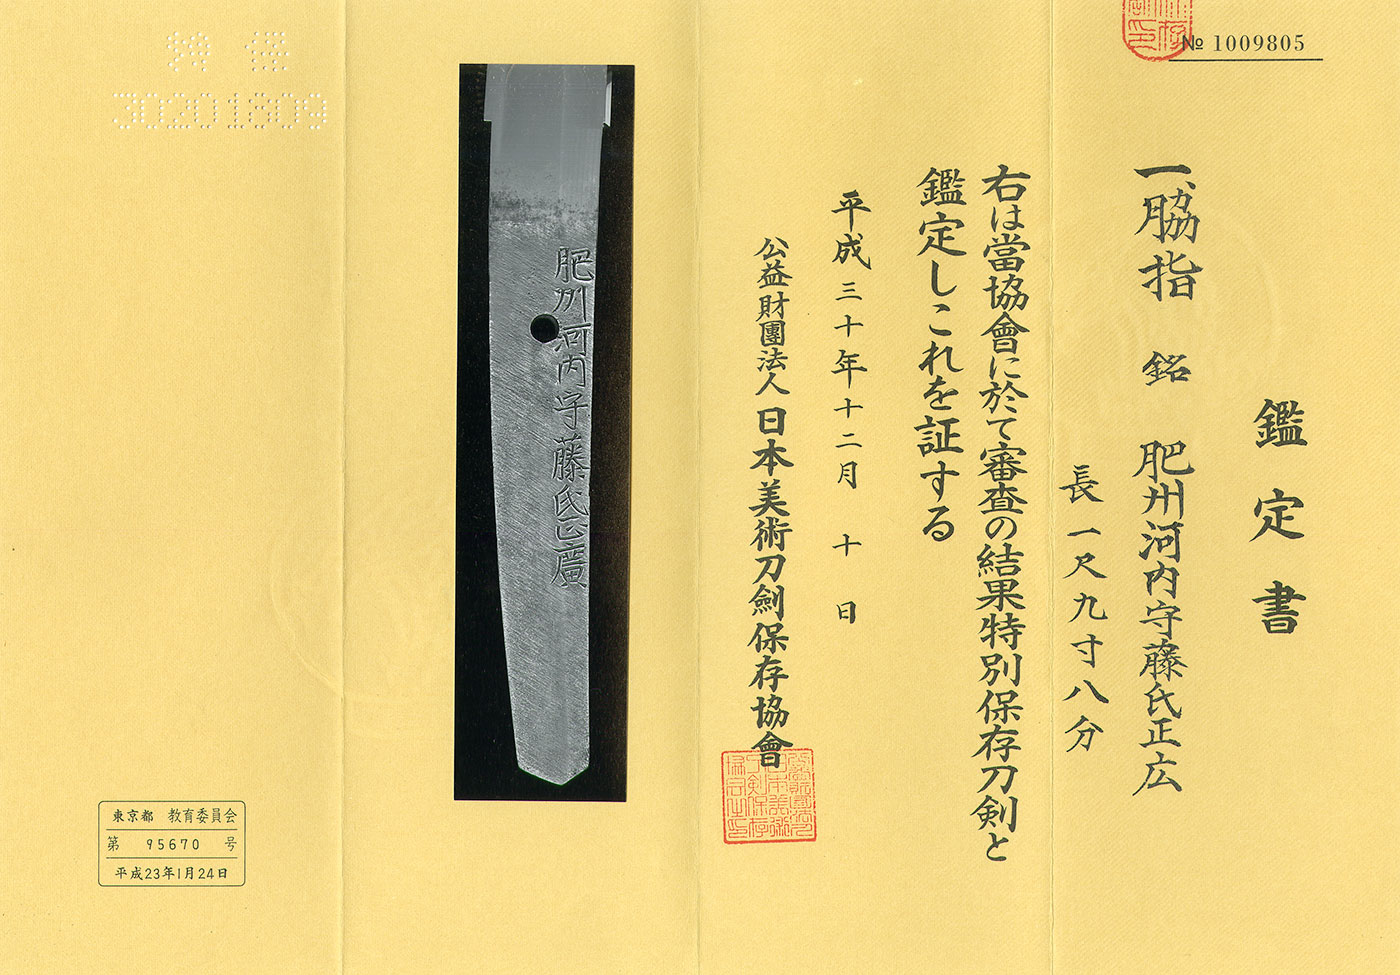 № 1009805
鑑定書
一、脇指 銘 肥州河内守藤氏正広
長一尺九寸八分
右は當協會に於て審査の結果特別保存刀剣と
鑑定しこれを証する
平成三十年十二月十日
公益財團法人日本美術刀劍保存協會
肥州河内守藤氏正廣
30201809
東京都 教育委員会
第 95670 号
平成23年1月24日